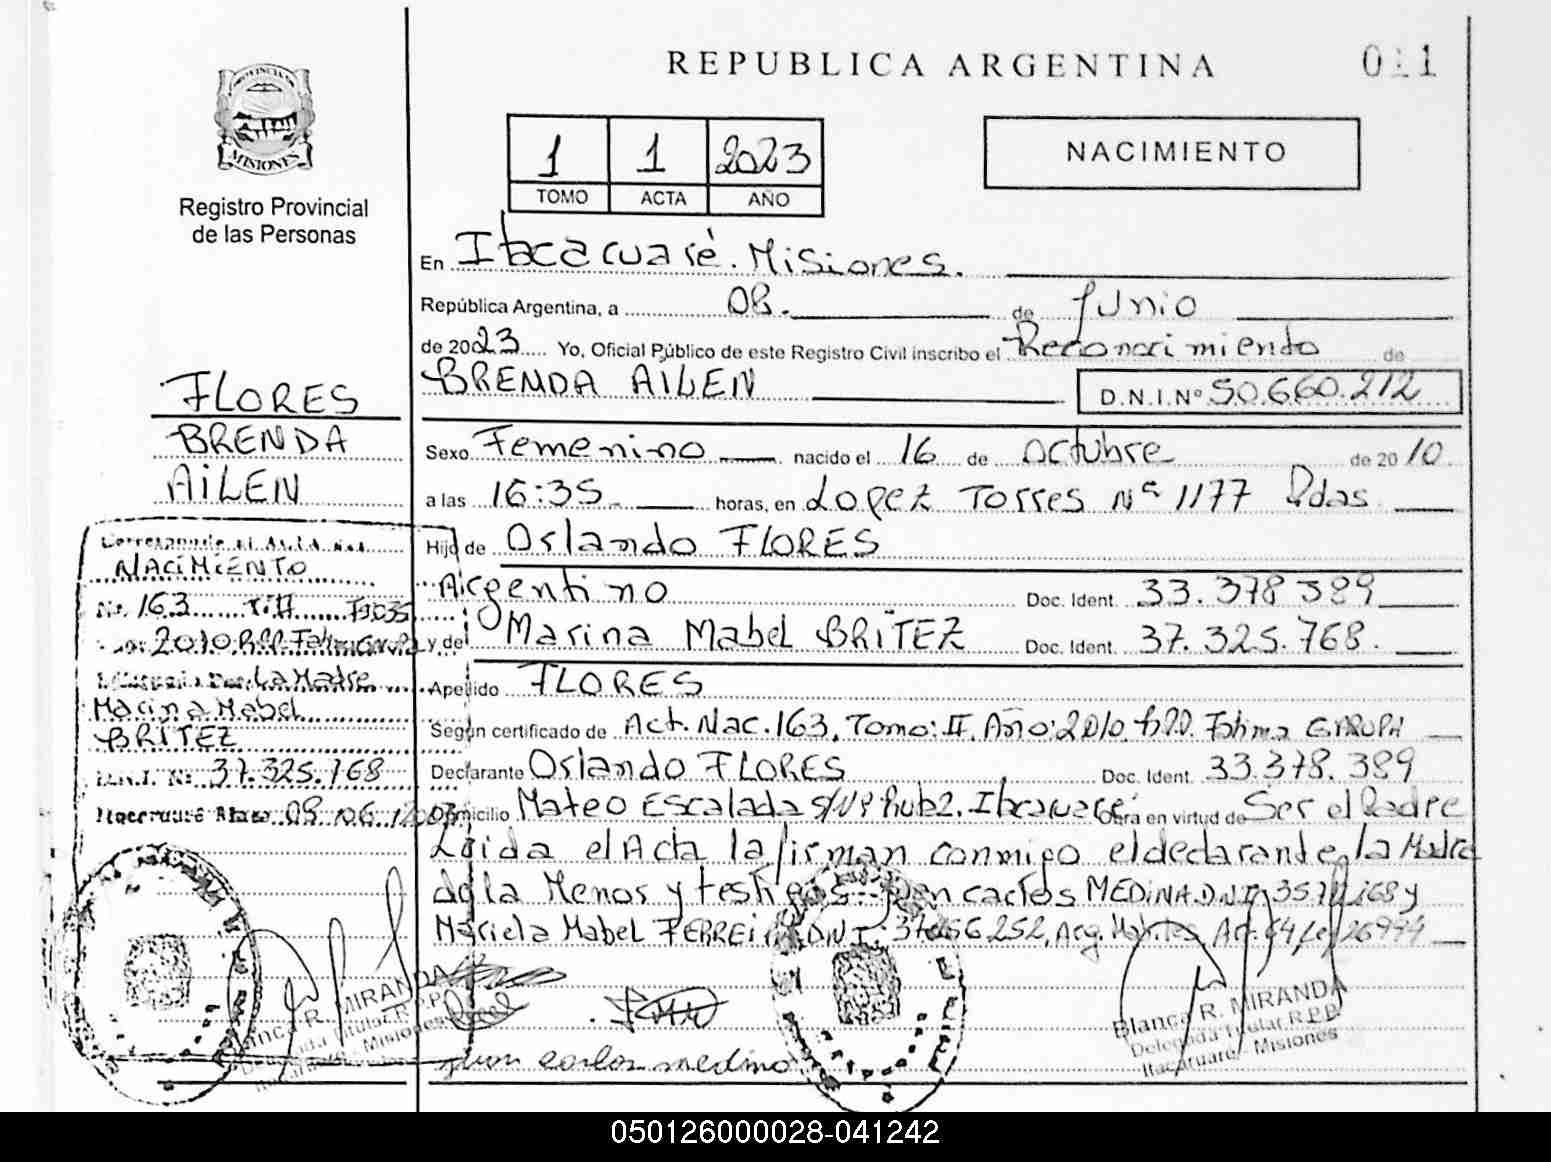 REPUBLICA ARGENTINA
011
PROVINCIA DE
MISIONES
Registro Provincial
de las Personas
1 1 2023
TOMO ACTA AÑO
NACIMIENTO
En Itacaruaré. Misiones.
República Argentina, a 08. de Junio
de 2023 Yo, Oficial Público de este Registro Civil inscribo el Reconocimiento de
BRENDA AILEN D.N.I.Nº 50.660.212
FLORES
BRENDA
AILEN
Sexo Femenino nacido el 16 de octubre de 2010
a las 16:35 horas, en Lopez Torres Nº 1177 Pdas
Hijo de Orlando FLORES
Argentino Doc. Ident. 33.378.389
y de Marina Mabel BRITEZ Doc. Ident. 37.325.768.
Apellido FLORES
Según certificado de Act. Nac. 163, Tomo: II, Año: 2010, Fatima GARUPA
Declarante Orlando FLORES Doc. Ident. 33.378.389
Domicilio Mateo Escalada S/Nº Itacaruaré Obra en virtud de Ser el Padre
Leida el Acta la firman conmigo el declarante, la Madre
de la Menor y testigos Juan carlos MEDINA D.N.I.
Mariela Mabel FERREI D.N.I. Arg.
NACIMIENTO
Nº 163
2010
La Madre
Marina Mabel
BRITEZ
D.N.I. Nº 37.325.768
Juan carlos medina
Blanca R. MIRANDA
Delegada Titular R.P.P.
Itacaruaré - Misiones
Blanca R. MIRANDA
Delegada Titular R.P.P.
Itacaruaré - Misiones
050126000028-041242